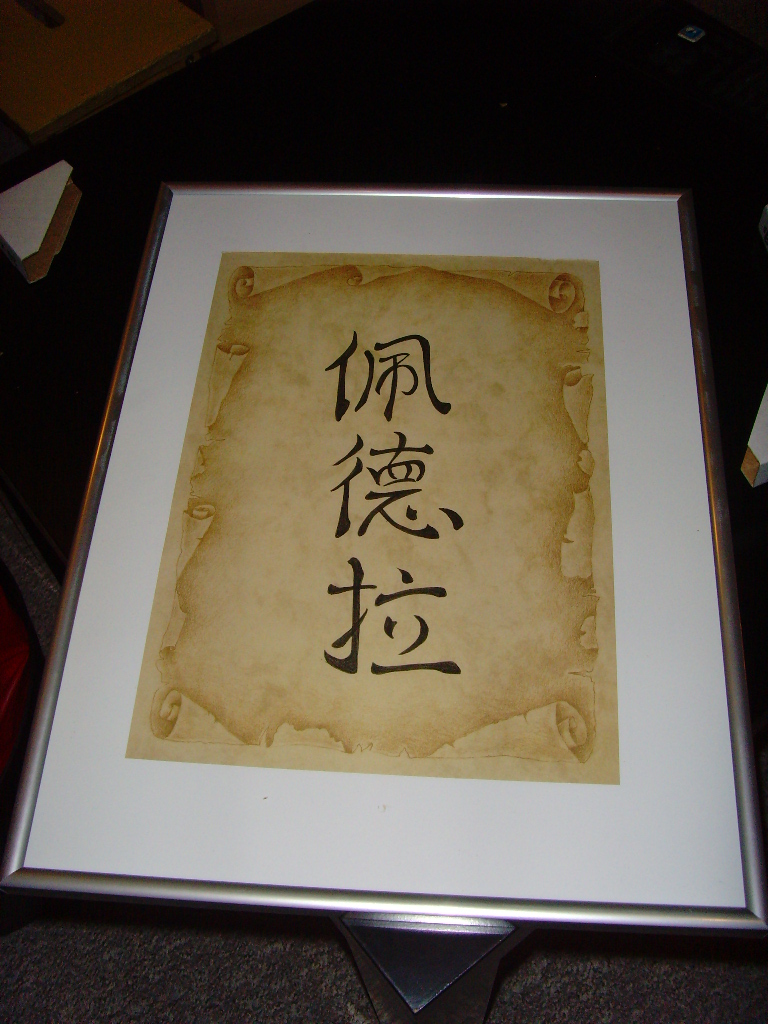 佩德拉